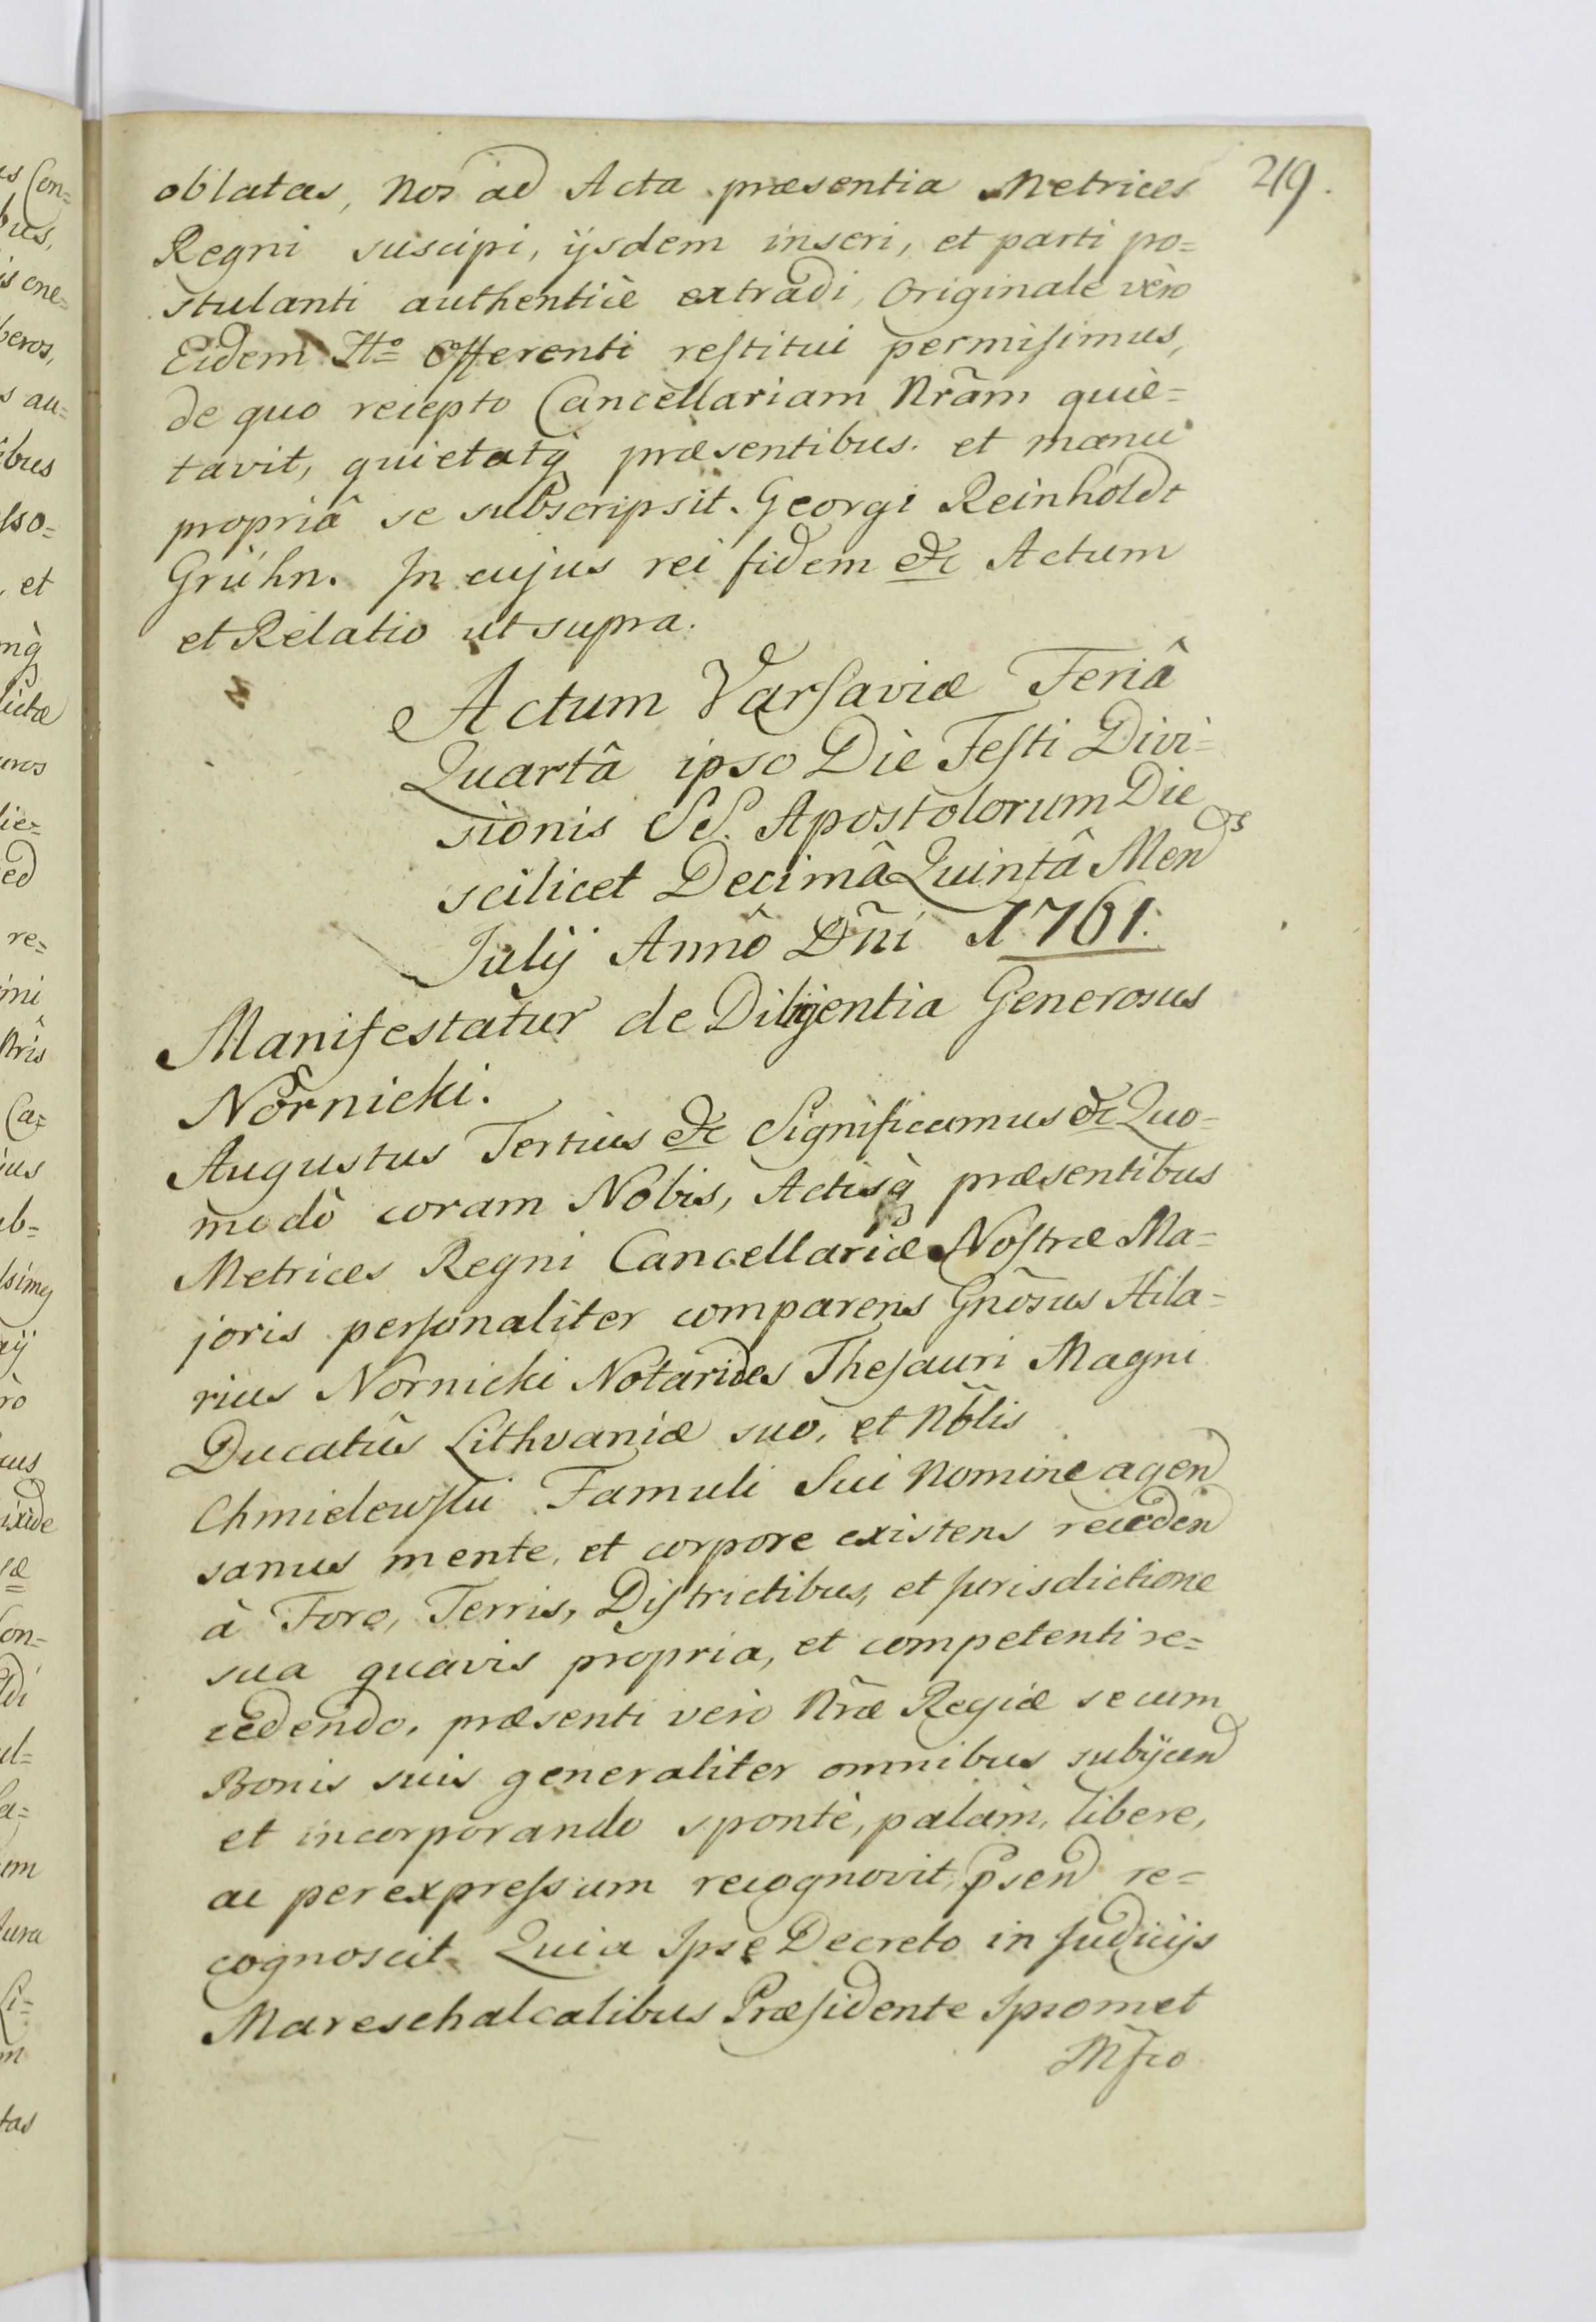 219.
oblatas, Nos ad Acta præsentia Metrices
Regni suscipi, ijsdem inseri, et parti po=
stulanti authenticè extradi, Originale vèro
Eidem Offerenti restitui permisimus,
de quo recepto Cancellariam Nrãm quie=
tavit, quietatq præsentibus. et manu
propriâ se subscripsit. Georgi Reinholdt
Grühn. In cujus rei fidem &c Actum
et Relatio ut supra.
Actum Varsaviæ Feriâ
Quartâ ipso Die Festi Divi=
sionis SS. Apostolorum Die
scilicet Decimâ Quintâ Mend
Julij Annô Dñi 1761.
Manifestatur de Diligentia Generosus
Nornicki.
Augustus Tertius &c Significamus &c Quo=
modò coram Nobis, Actisq̀ præsentibus
Metrices Regni Cancellariæ Nostræ Ma=
joris personaliter comparens Gnõsus Hila=
rius Nornicki Notarius Thesauri Magni
Ducatûs Lithvaniæ suô, et Nb̃lis
Chmielewski Famuli Sui Nomine agend
sanus mente, et corpore existens receden
à Foro, Terris, Districtibus, et Jurisdictione
sua quavis propria, et competenti re=
cedendo, præsenti vèro Nræ Regiæ se cum
Bonis suis generaliter omnibus subijcend
et incorporando spontè, palàm, libere,
ac per expressum recognovit, psend re=
cognoscit. Quia Ipse Decreto in Judicijs
Mareschalcalibus Præsidente Ipsomet